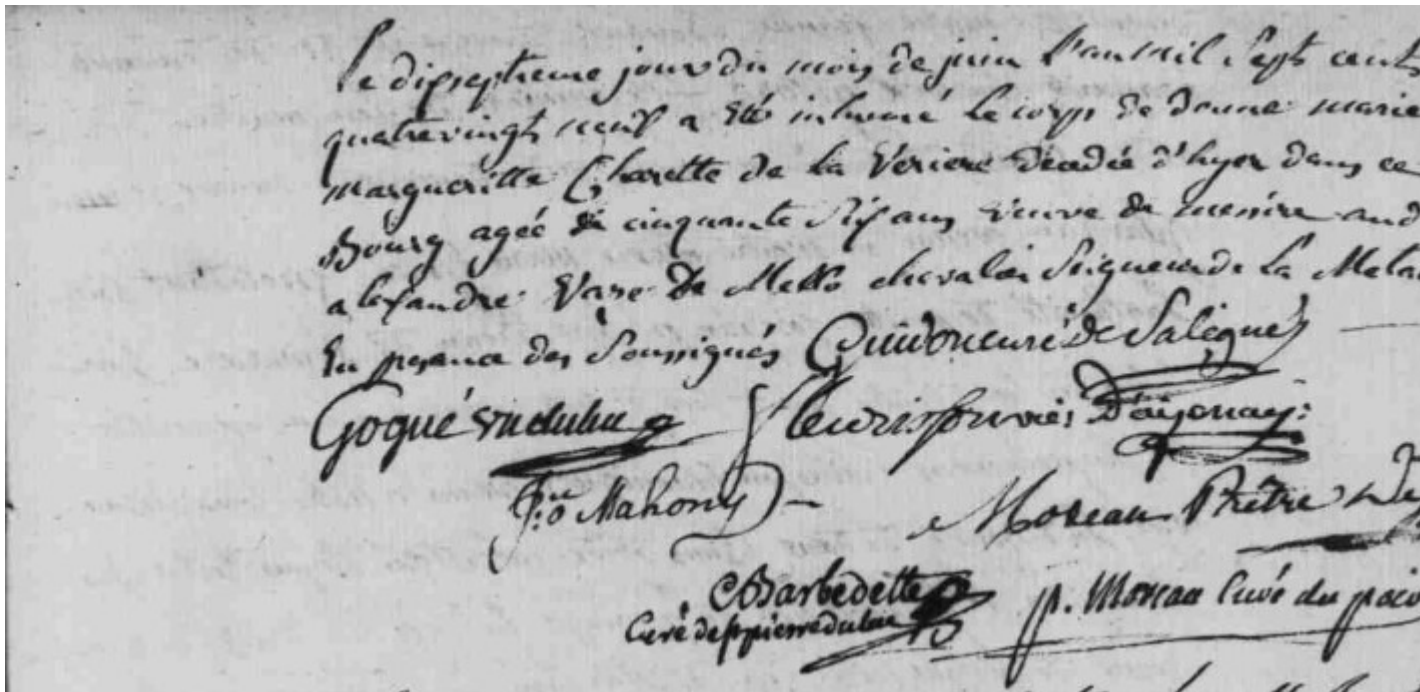 Le dipseptieme jour du mois de juin l'an mil sept cents
quatre vingt neuf a été inhumé le corps de donne marie
margueritte Charette de la Veriere décédée d'hyer dans ce
Bourg agée de cinquante six ans veuve de messire
alexandre de Mello chevalier Seigneur de la
En presence des Soussignés Guidon curé de Saligné
Goqué
F: o Mahony Moreau Prêtre
Barbedette
Curé de st pierre du luc p. Moreau Curé du